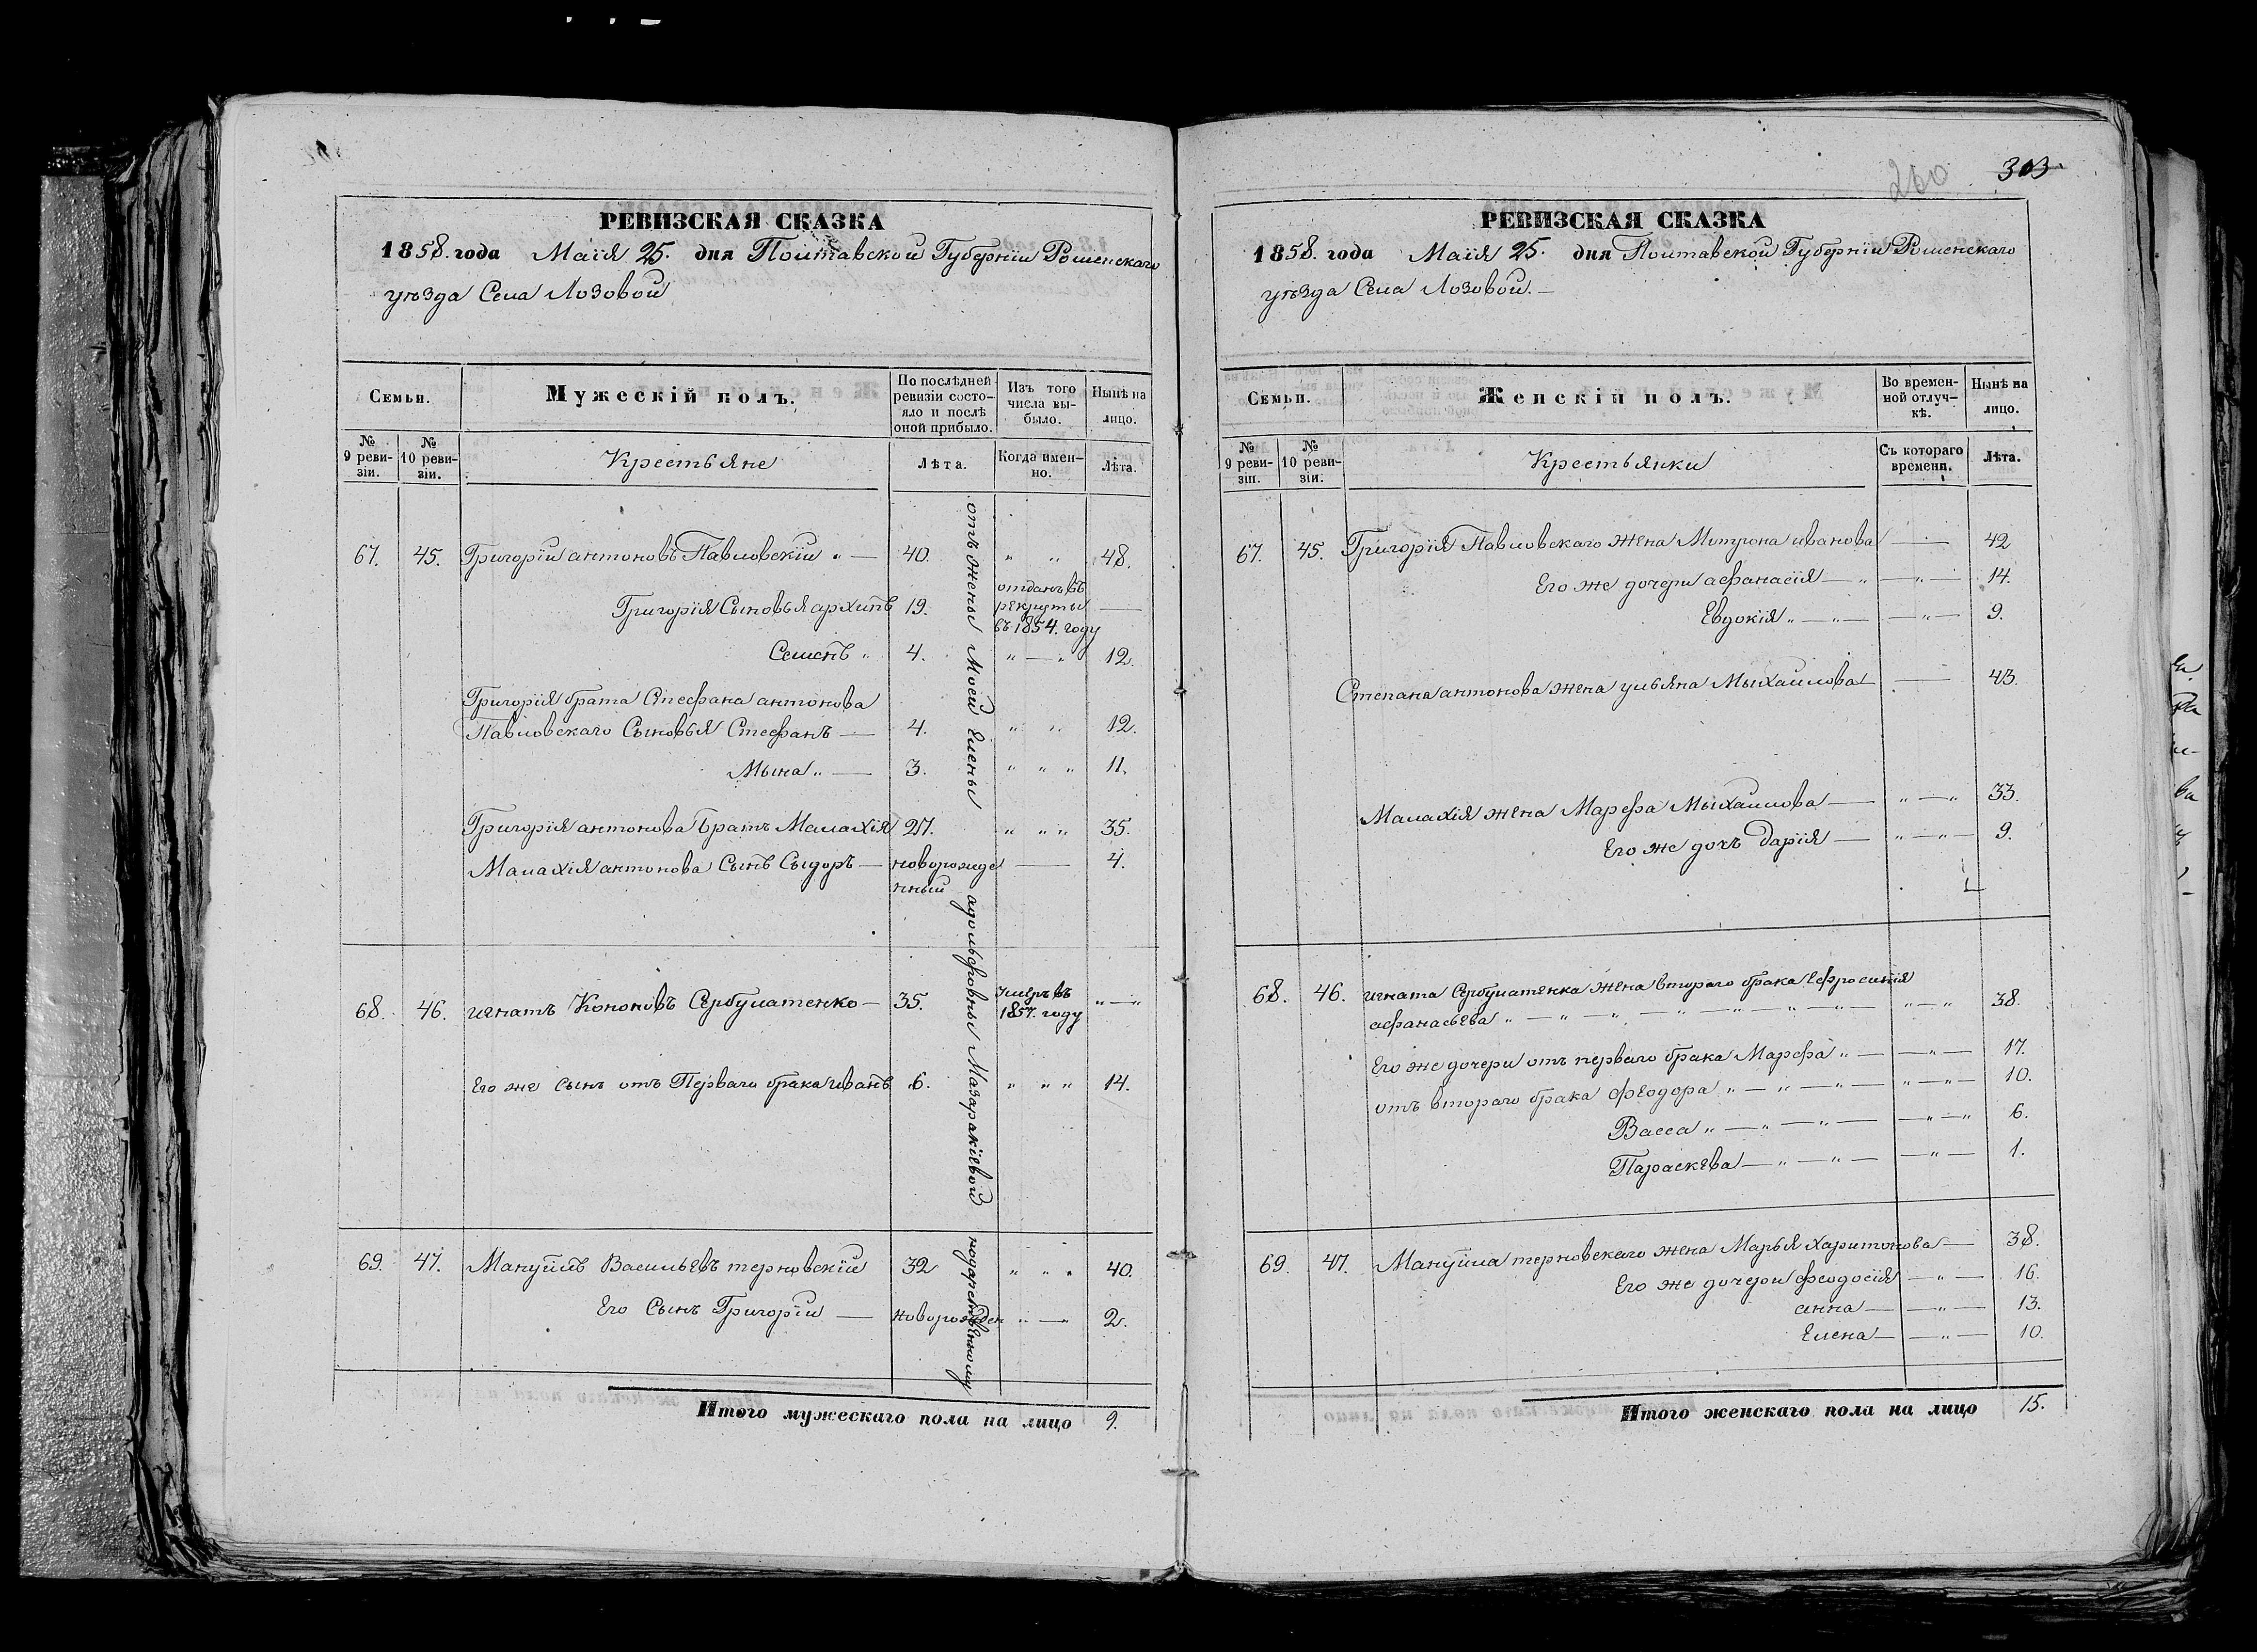 РЕВИЗСКАЯ СКАЗКА
1858. года Маія 25. дня Полтавской Губерніи Роменскаго
уѣзда Села Лозовой
Семьи.
Мужескій полъ.
По послѣдней ревизіи состояло и послѣ оной прибыло.
Изъ того числа выбыло.
Нынѣ на лицо.
№ 9 ревизіи.
№ 10 ревизіи.
Крестьяне
Лѣта.
Когда именно.
Лѣта.
67. 45. Григорій антоновъ Павловскій „ — 40. „ „ 48.
Григорія Сыновья архипъ 19. отданъ въ рекруты въ 1854. году —
Семенъ „ 4. „ — „ 12.
Григорія брата Стефана антонова
Павловскаго Сыновья Стефанъ — 4. „ „ 12.
Мына „ — 3. „ „ „ 11.
Григорія антонова братъ Малахія 27. „ „ „ 35.
Малахія антонова Сынъ Сыдоръ — новорожденный — 4.
68. 46. игнатъ Кононовъ Сербулатенко — 35. Умеръ въ 1857. году „ — „
Его же сынъ отъ Перваго брака иванъ 6. „ „ „ 14.
69. 47. Мануйлъ Васильевъ терновскій 32 „ „ „ 40.
Его Сынъ Григорій — новорожден „ — „ 2.
отъ жены Моей Елены адольфовны Мазаракіевой подаренному
Итого мужескаго пола на лицо 9.
260 303
РЕВИЗСКАЯ СКАЗКА
1858. года Маія 25. дня Полтавской Губерніи Роменскаго
уѣзда Села Лозовой. —
Семьи.
Женскій полъ.
Во временной отлучкѣ.
Нынѣ на лицо.
№ 9 ревизіи.
№ 10 ревизіи.
Крестьянки
Съ котораго времени.
Лѣта.
67. 45. Григорія Павловскаго жена Митрона иванова — 42
Его же дочери афанасія — „ — „ — 14.
Евдокія „ — „ — — „ — 9.
Степана антонова жена ульяна Мыхаилова — — 43.
Малахія жена Марфа Мыхаилова — „ — „ 33.
Его же дочь Дарія — „ — „ — 9.
68. 46. игната Сербулатенка жена втораго брака Ефросинія
афанасьева „ — „ — „ — „ — „ — „ — „ — „ — „ 38.
Его же дочери отъ перваго брака Марфа „ — — „ — 17.
отъ втораго брака Феодора „ — „ — „ — „ — „ — 10.
Васса „ — „ — „ — — „ — „ 6.
Параскева — „ — „ — — „ — 1.
69. 47. Мануйла терновскаго жена Марья харитонова — 38.
Его же дочери феодосія — „ — 16.
анна — — „ — 13.
Елена — — „ — 10.
Итого женскаго пола на лицо 15.